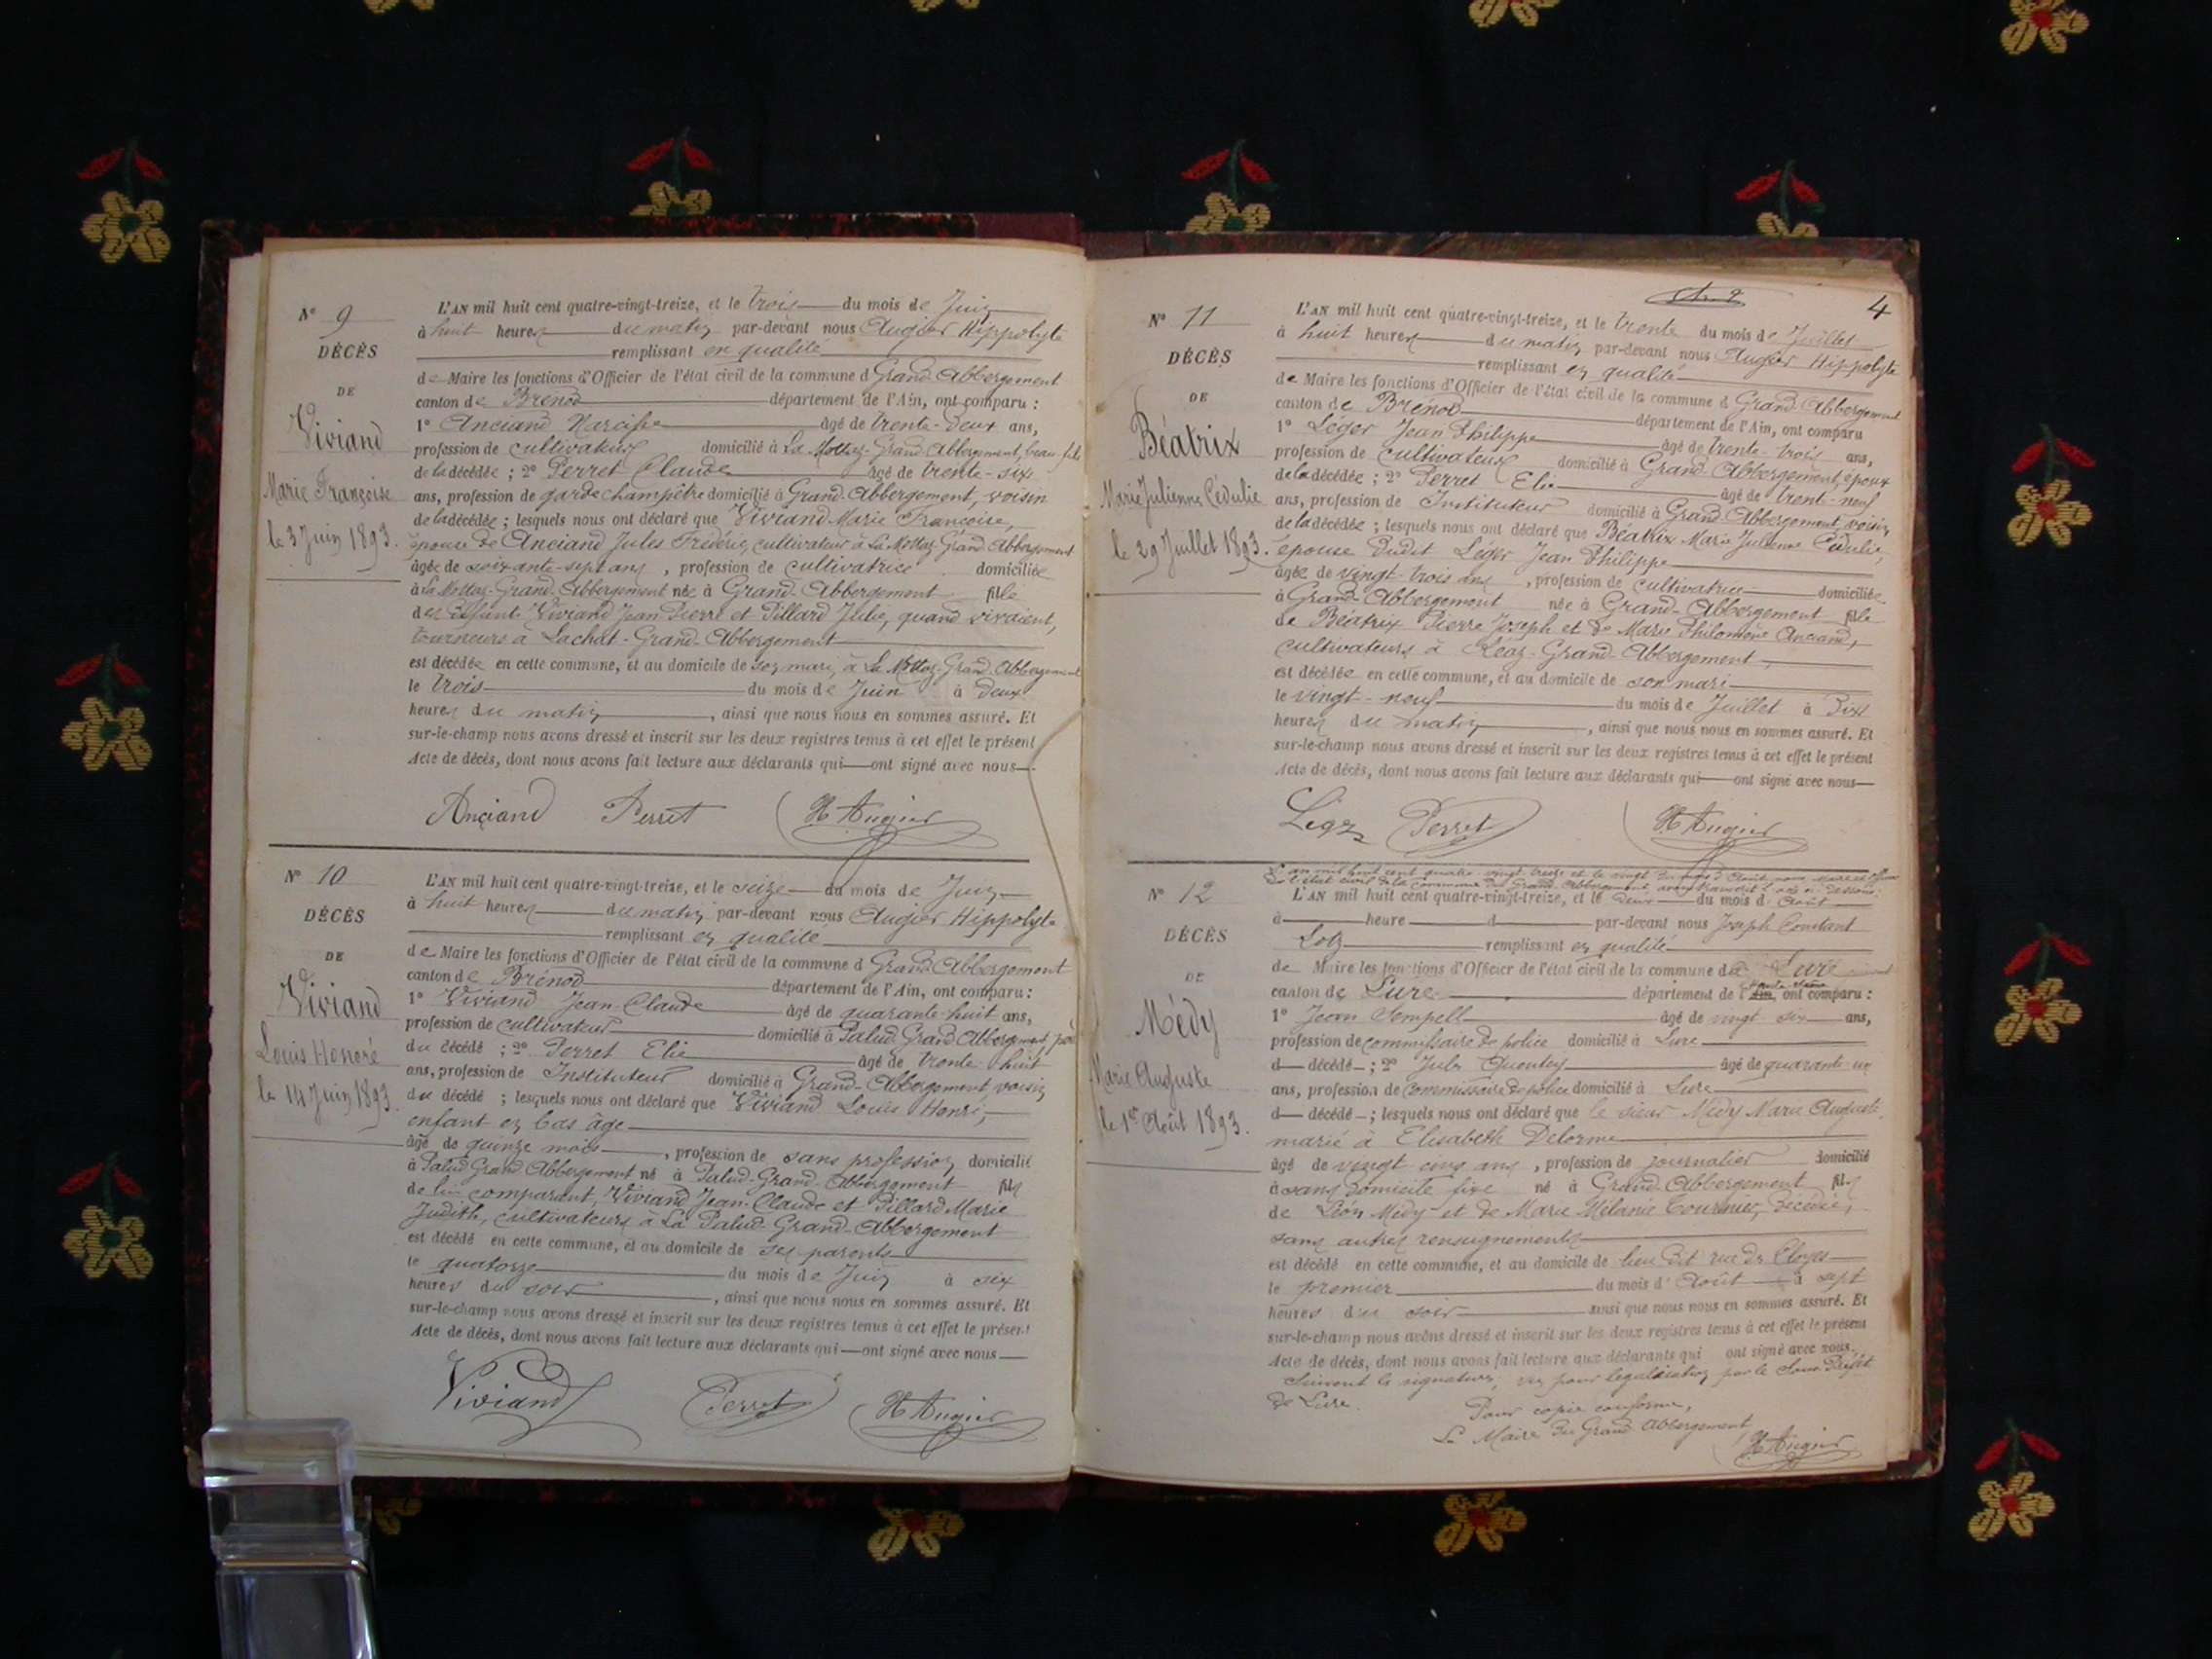 N° 9
DÉCÈS
DE
Viviand
Marie Françoise
le 3 Juin 1893.
L'AN mil huit cent quatre-vingt-treize, et le trois du mois de Juin
à huit heures du matin par-devant nous Augier Hippolyte
remplissant en qualité
de Maire les fonctions d'Officier de l'état civil de la commune d Grand-Abbergement
canton de Brénod département de l'Ain, ont comparu :
1° Anciand Narcisse âgé de trente-deux ans,
profession de cultivateur domicilié à La Mottaz-Grand-Abbergement, beau-fils
de la décédée ; 2° Perret Claude âgé de trente-six
ans, profession de garde champêtre domicilié à Grand-Abbergement, voisin
de la décédée ; lesquels nous ont déclaré que Viviand Marie Françoise,
épouse de Anciand Jules Frédéric, cultivateur à La Mottaz-Grand-Abbergement
âgée de soixante-sept ans, profession de cultivatrice domiciliée
à La Mottaz-Grand-Abbergement née à Grand-Abbergement fille
des défunts Viviand Jean Pierre et Pillard Julie, quand vivaient,
tourneurs à Lachat-Grand-Abbergement
est décédée en cette commune, et au domicile de son mari, à La Mottaz-Grand-Abbergement
le trois du mois de Juin à deux
heures du matin, ainsi que nous nous en sommes assuré. Et
sur-le-champ nous avons dressé et inscrit sur les deux registres tenus à cet effet le présent
Acte de décès, dont nous avons fait lecture aux déclarants qui ont signé avec nous
Anciand Perret H Augier
N° 10
DÉCÈS
DE
Viviand
Louis Honoré
le 14 Juin 1893.
L'AN mil huit cent quatre-vingt-treize, et le seize du mois de Juin
à huit heures du matin, par-devant nous Augier Hippolyte
remplissant en qualité
de Maire les fonctions d'Officier de l'état civil de la commune d Grand Abbergement
canton de Brénod département de l'Ain, ont comparu :
1° Viviand Jean Claude âgé de quarante-huit ans,
profession de cultivateur domicilié à Palud-Grand-Abbergement, père
du décédé ; 2° Perret Elie âgé de trente huit
ans, profession de Instituteur domicilié à Grand-Abbergement, voisin
du décédé ; lesquels nous ont déclaré que Viviand Louis Honoré,
enfant en bas âge
âgé de quinze mois, profession de sans profession domicilié
à Palud Grand Abbergement né à Palud-Grand-Abbergement fils
de lui comparant, Viviand Jean-Claude et Pillard Marie
Judith, cultivateurs à La Palud-Grand-Abbergement
est décédé en cette commune, et au domicile de ses parents
le quatorze du mois de Juin à six
heures du soir, ainsi que nous nous en sommes assuré. Et
sur-le-champ nous avons dressé et inscrit sur les deux registres tenus à cet effet le présent
Acte de décès, dont nous avons fait lecture aux déclarants qui ont signé avec nous
Viviand Perret H Augier
4
N° 11
DÉCÈS
DE
Béatrix
Marie Julienne Cédulie
le 29 Juillet 1893.
L'AN mil huit cent quatre-vingt-treize, et le trente du mois de Juillet
à huit heures du matin par-devant nous Augier Hippolyte
remplissant en qualité
de Maire les fonctions d'Officier de l'état civil de la commune d Grand-Abbergement
canton de Brénod département de l'Ain, ont comparu
1° Léger Jean Philippe âgé de trente-trois ans,
profession de cultivateur domicilié à Grand-Abbergement, époux
de la décédée ; 2° Perret Elie âgé de trent-neuf
ans, profession de Instituteur domicilié à Grand-Abbergement, voisin
de la décédée ; lesquels nous ont déclaré que Béatrix Marie Julienne Cédulie,
épouse dudit Léger Jean Philippe
âgée de vingt-trois ans, profession de cultivatrice domiciliée
à Grand-Abbergement née à Grand-Abbergement fille
de Béatrix Pierre Joseph et de Marie Philomène Anciand,
cultivateurs à Grand-Abbergement,
est décédée en cette commune, et au domicile de son mari
le vingt-neuf du mois de Juillet à dix
heures du matin, ainsi que nous nous en sommes assuré. Et
sur-le-champ nous avons dressé et inscrit sur les deux registres tenus à cet effet le présent
Acte de décès, dont nous avons fait lecture aux déclarants qui ont signé avec nous
Léger Perret H Augier
N° 12
DÉCÈS
DE
Médy
Marie Auguste
le 1er Août 1893.
L'an mil huit cent quatre-vingt treize et le vingt du mois d'Août, nous, Maire et officier
de l'état civil de la commune du Grand-Abbergement, avons transcrit l'acte ci-dessous :
L'AN mil huit cent quatre-vingt-treize, et le deux du mois d'Août
à heure d par-devant nous Joseph Constant
Lotz remplissant en qualité
de Maire les fonctions d'Officier de l'état civil de la commune de Lure
canton de Lure département de l'Ain Haute Saône, ont comparu :
1° Jean Sempell âgé de vingt six ans,
profession de commissaire de police domicilié à Lure
d décédé ; 2° Jules âgé de quarante un
ans, profession de commissaire de police domicilié à Lure
d décédé ; lesquels nous ont déclaré que le sieur Médy Marie Auguste,
marié à Elisabeth Delorme
âgé de vingt cinq ans, profession de journalier domicilié
à sans domicile fixe né à Grand-Abbergement fils
de Léon Médy et de Marie Mélanie Tournier, décédée,
sans autres renseignements
est décédé en cette commune, et au domicile de lieu dit rue des Cloyes
le premier du mois d'Août à sept
heures du soir ainsi que nous nous en sommes assuré. Et
sur-le-champ nous avons dressé et inscrit sur les deux registres tenus à cet effet le présent
Acte de décès, dont nous avons fait lecture aux déclarants qui ont signé avec nous.
Suivent les signatures ; vu pour légalisation par le Sous-Préfet
de Lure.
Pour copie conforme,
Le Maire du Grand Abbergement,
H Augier